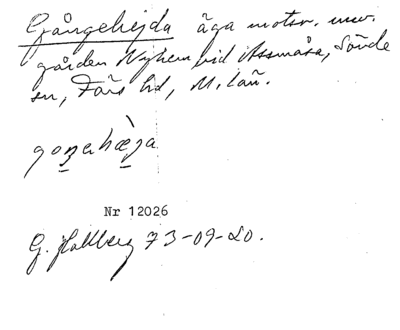 Gångehejda äga motsv. nuv.
gården Nyhem vid Assmåsa, Sövde
sn, Färs hd, M. län.
Nr 12026
G. Hallberg 73-09-20.